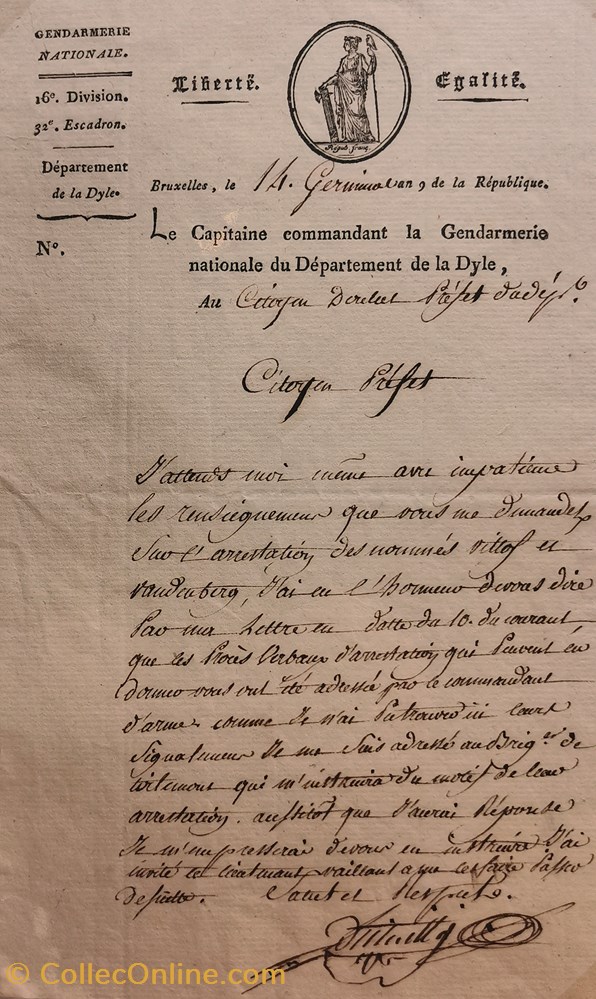 GENDARMERIE
NATIONALE.
16e. Division.
32e. Escadron.
Département
de la Dyle.
N°.
Liberté.
Egalité.
Répub. franç.
Bruxelles, le 14. Germinal an 9 de la République.
Le Capitaine commandant la Gendarmerie
nationale du Département de la Dyle,
Au Citoyen Doulcet Préfet dudépt.
Citoyen Préfet
J'attends moi même avec impatience
les renseignemens que vous me demandez
Sur l'arrestation des nommés et
Vandenberg, J'ai eu l'honneur devous dire
Par ma Lettre en datte du 10. du courant
que les Procès Verbaux d'arrestation qui Peuvent en
donner vous ont été adressé par le commandant
d'armes comme Je n'ai Pu trouver ici leurs
Signalemens Je me Suis adressé au Briger. de
qui m'instruira du motif de leur
arrestation. aussitôt que J'aurai Réponse
Je m'empresserai devous en instruire J'ai
invité le Lieutenant vaillant a me les faire Passer
desuitte. Salut et Respect.
© CollecOnline.com